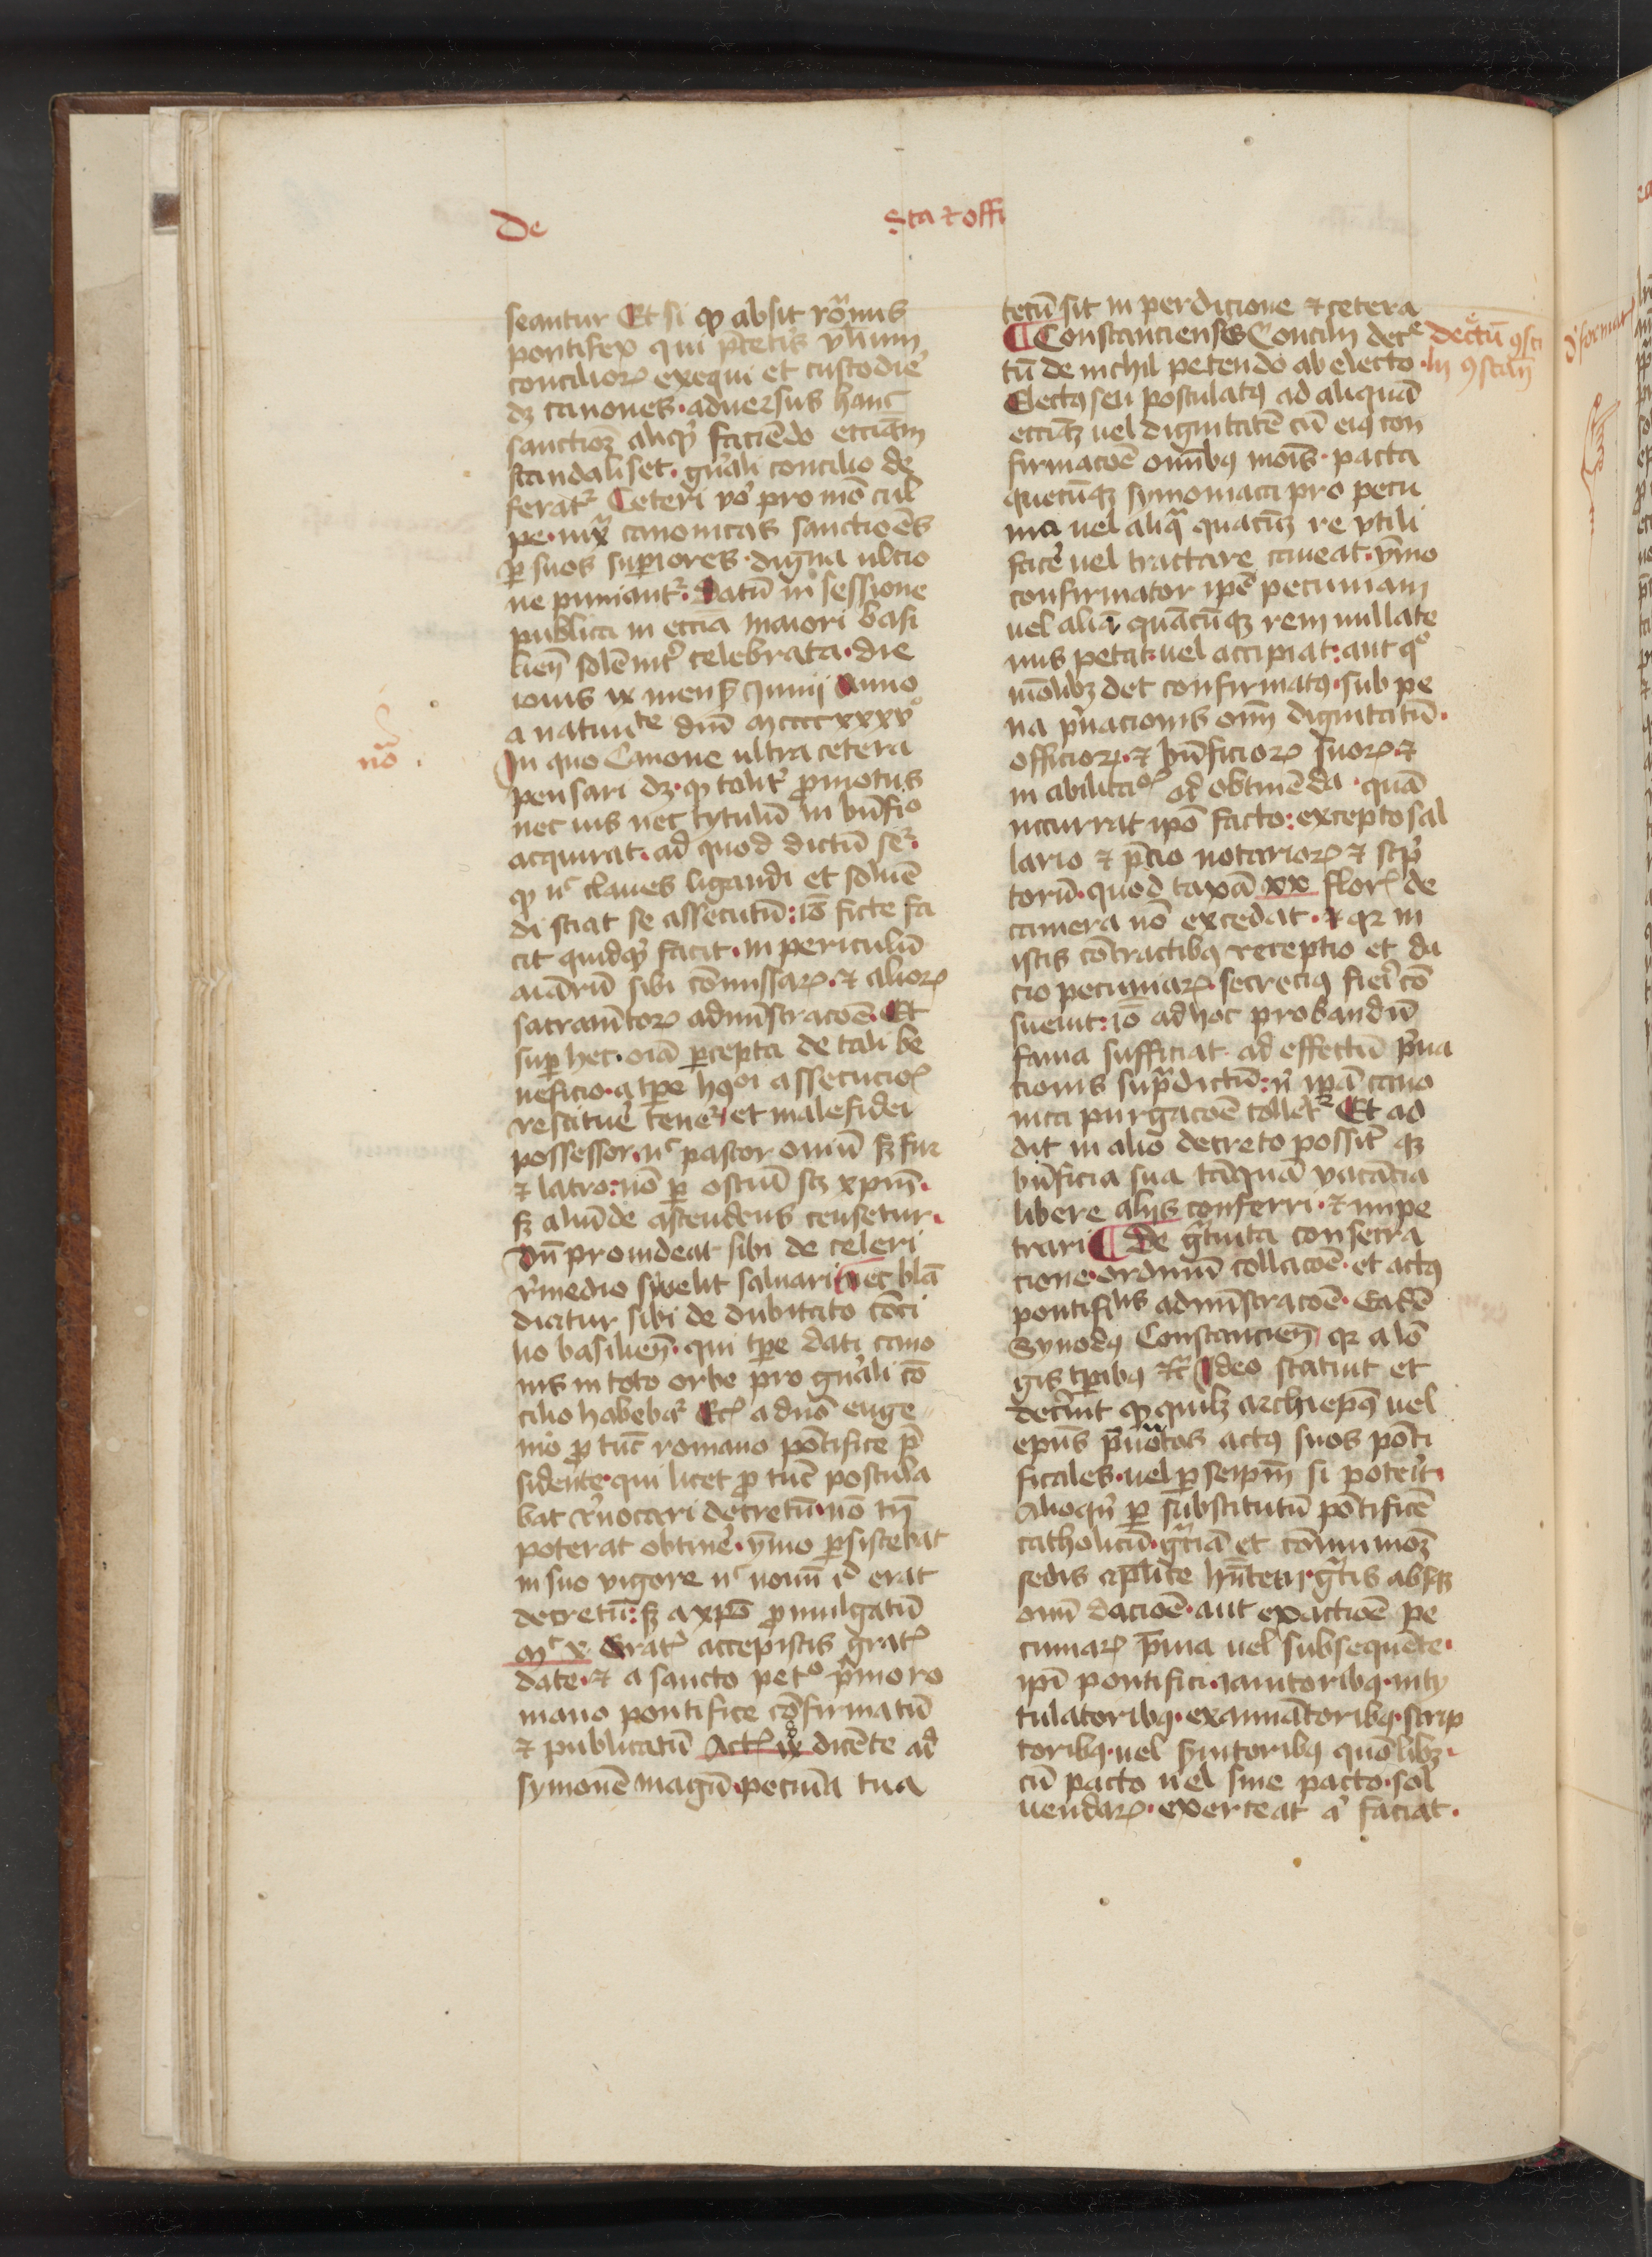 De
sta et offi
seantur Et si qd absit romnus
pontifex qui pretis vlium
conciliorum exequi et custodire
dz canones · aduersus hanc
sanctioz aliqd faciendo ecciam
scandaliset · gnali concilio de
feratr Ceteri vo pro mo cul
pe · iux canonicas sanctiones
per suos superiores · digna ultio
ne puniantr · Datum in sessione
publica in eccia maiori basi
lien solemniter celebrata · die
iouis ix mens Junij Anno
a natiuite dni mccccxxxv°
no
In quo Canone ultra cetera
pensari dz · qd talitr promotus
nec ius nec tytulum in bnfio
acquirat · ad quod dictum ser
qd nc claues ligandi et soluen
di sciat se assecutum : io ficte fa
cit quidqd facit · in periculum
aiarum sibi comissarum · et aliorum
sacramentorum adminstracoe · Et
super hec · oia percepta de tali be
neficio · a tpe hmoi assecucios
restituere tener · et malefidei
possessor · nc pastor ouium sz fur
et latro : no per ostium scz xpm ·
sz aliunde ascendens censetur ·
Dn prouideat sibi de celeri
remedio si velit saluari Nec blan
diatur sibi de dubitato conci
lio basilien · qui tpe dati cano
nis in toto orbe pro gnali con
cilio habebar Etc a dno euge
nio pro tunc romano pontifice pre
sidente · qui licet pro tunc postula
bat reuocari decretum · no tn
poterat obtinere · ymo persistebat
in suo vigore nc nouum id erat
decretum : sz a xpo promulgatum
Mt x Gratis accepistis gratis
date · et a sancto petro primo ro
mano pontifice confirmatum
et publicatum Act ix dicente ad
symonem magum · pecunia tua
tecum sit in perdicione et cetera
Constanciensis Concilij decre
tum de nichil petendo ab electo
decretum consci
lij constan
Electus seu postulatus ad aliquam
ecciaz uel dignitatem cum eius con
firmacoe omnibus mois · pacta
quecunqz symoniaca pro pecu
nia uel aliqua quacunqz re vtili
facere uel tractare caueat · ymo
confirmator ipse pecuniam
uel aliam quamcunqz rem nullate
nus petat · uel accipiat : aut quo
modolibz det confirmatus · sub pe
na priuacionis omni dignitatum ·
officiorum · et bnficiorum suorum · et
inabilitatis ad obtinenda · quam
incurrat ipo facto : excepto sal
lario et precio notariorum et scrip
torum · quod taxam xx flor de
camera non excedat · et qr in
istis contractibus receptio et da
cio pecuniarum · secrecius fieri con
sueuit : io ad hoc probandum
fama sufficiat · ad effectum priua
cionis supradictum : ni ipam cano
nica purgacoe tolletr Et ad
dit in alio decreto possit qz
bnficia sua tanquam vacancia
libere alijs conferri · et impe
trari De gratuita consecra
cione · ordinum collacoe · et actus
pontificalis adminstracoe · Eadem
Synodus Constancien qr a lon
gis tpibus etc Ideo statuit et
decreuit qd quilz archiepus uel
epus prenotatos actus suos ponti
ficales · uel per seipm si poterit ·
Alioqn per substitutum pontificem
catholicum · gratiam et communionem
sedis aplice hntem · gratis absqz
omni dacioe · aut exactioe pe
cuniarum preuia uel subsequente ·
ipi pontifici · ianitoribus · inty
tulatoribus · examinatoribus · scrip
toribus · uel syntoribus quomolibz ·
cum pacto uel sine pacto · sol
uendarum · exerceat et faciat ·